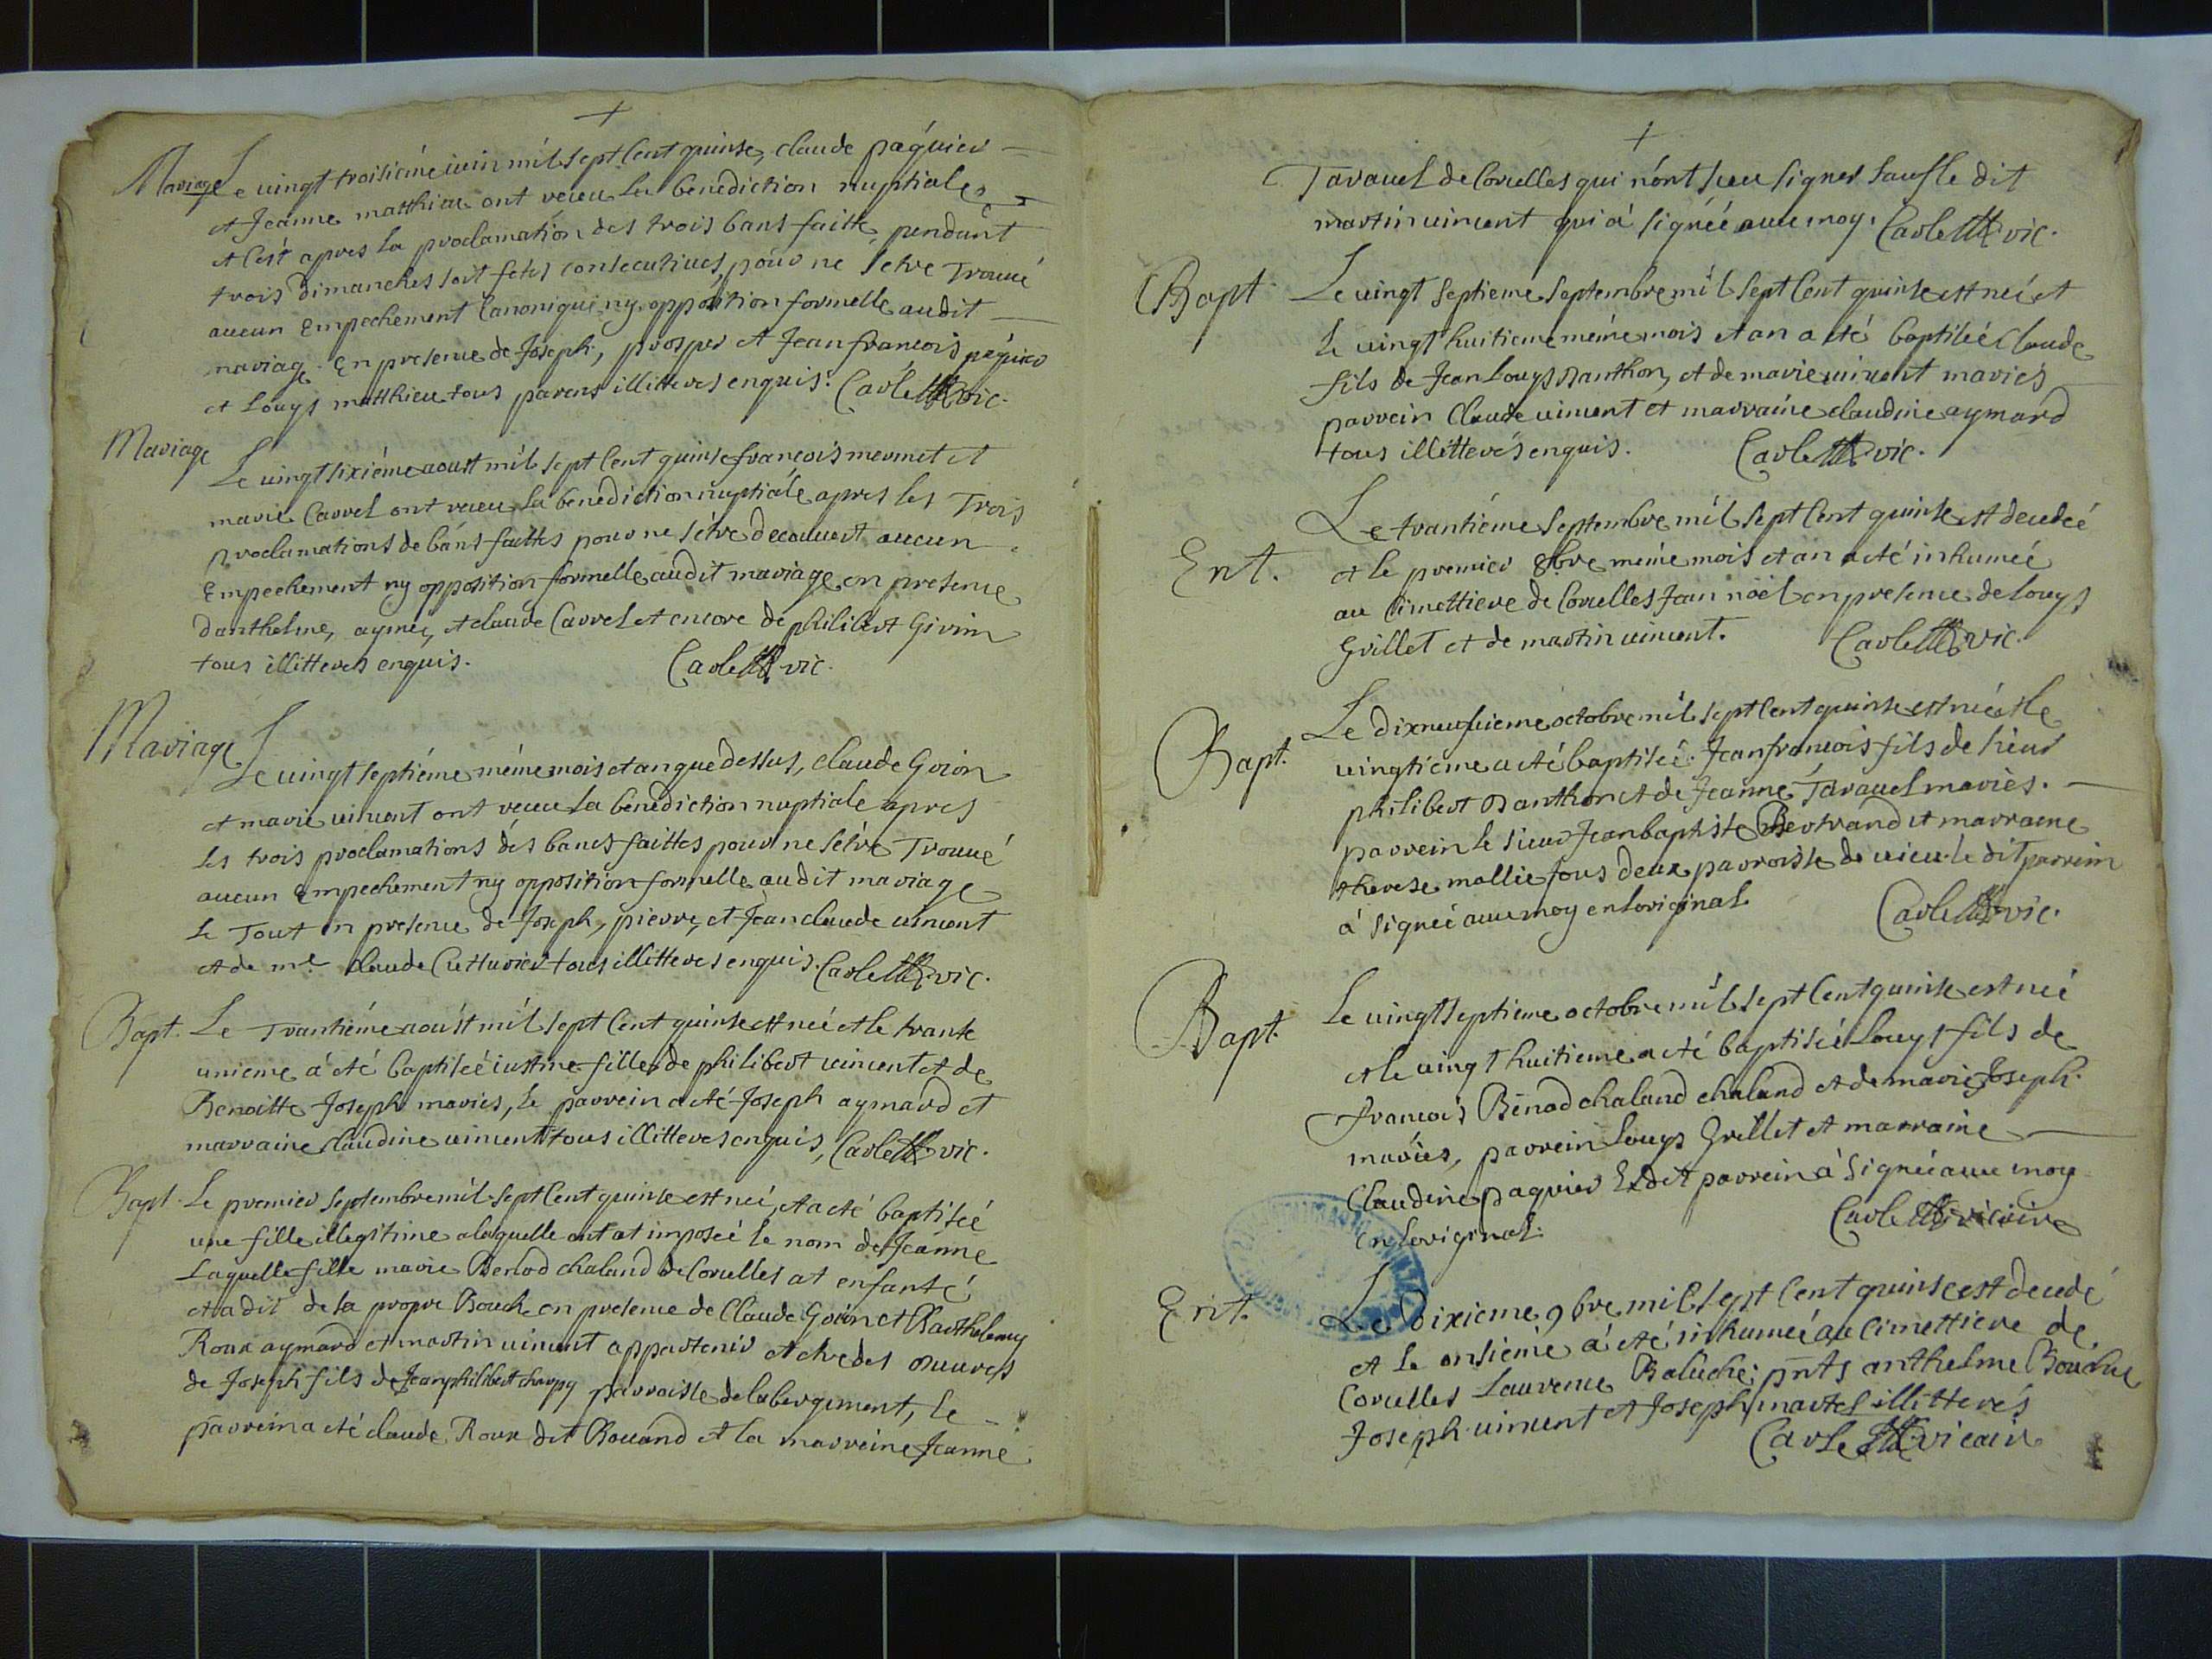 +
Mariage Le vingt troisiéme iuin mil sept Cent quinse, claude páquier
et Jeanne matthieu ont receu la benediction nuptiale
et C'ést apres la proclamation des trois bans faitte pendant
trois Dimanches soit fetes consecutives, pour ne s'etre Trouvé
aucun Empechement Canonique ny opposition formelle audit
mariage En presence de Joseph, prosper et Jean francois páquier
et Louys matthieu tous parens illitteres enquis. Carle vic.
Mariage
Le vingt sixiéme aoust mil sept Cent quinse francois mermet et
marie Carrel ont receu la benediction nuptiale apres les Trois
proclamations de bans faittes pour ne s'étre decouvert aucun
Empechement ny opposition formelle audit mariage en presence
d'anthelme, aymé, et claude Carrel et encore de philibert Girin
tous illitteres enquis. Carle vic.
Mariage
Le vingt septiéme méme mois et an que dessus, claude Goion
et marie vincent ont receu la benediction nuptiale apres
les trois proclamations dés bancs faittes pour ne s'étre Trouvé
aucun Empechement ny opposition formelle audit mariage
Le Tout en presence de Joseph, pierre, et Jean claude vincent
et de me. claude tous illitteres enquis. Carle vic.
Bapt. Le Trantiéme aoúst mil sept Cent quinse est neé et le trante
unieme a' eté baptiseé iustine fille de philibert vincent et de
Benoitte Joseph mariés, le parrein a eté Joseph aymard et
marraine claudine vincent tous illitteres enquis, Carle vic.
Bapt. Le premier septembre mil sept Cent quinse est neé, et a eté baptiseé
une fille illegitime a laquelle ont at imposeé le nom de Jeánne
Laquelle fille marie Benod chaland de Corcelles at enfanté,
et a dit de sa propre Bouche en presence de Claude Goion et Barthelemy
Roux aymard et martin vincent appartenir et etre des oeuvres
de Joseph fils de Jean philibert charpy parroisse de labergement, le
parrein a eté claude Roux dit Rouand et la marreine Jeanne
+
Taravel de Corcelles qui n'ont sceu signer sauf le dit
martin vincent qui a' signeé avec moy. Carle vic.
Bapt
Le vingt septieme septembre mil sept Cent quinse est neé et
le vingt huitieme méme mois et an a eté baptiseé Claude
fils de Jean Louys Banthon, et de marie vincent mariés
parrein Claude vincent et marraine claudine aymard
tous illitterés enquis. Carle vic.
Ent.
Le trantiéme septembre mil sept Cent quinse est decedeé
et le premier 8bre méme mois et an a eté inhumeé
au Cimettiere de Corcelles Jean noël en presence de Louys
Grillet et de martin vincent. Carle vic.
Bapt.
Le dixneufvieme octobre mil sept Cent quinse est neé et le
vingtieme a eté baptiseé Jean francois fils de sieur
philibert Banthon et de Jeanne Taravel mariés.
parrein le sieur Jean baptiste Bertrand et marraine
therese mollie tous deux parroisse de vieu le dit parrein
a' signeé avec moy en l'original Carle vic.
Bapt.
Le vingt septieme octobre mil sept Cent quinse est neé
et le vingt huitieme a eté baptiseé Louys fils de
francois Bénod chaland chaland et de marie Joseph
mariés, parrein Louys Grillet et marraine
Claudine paquier Le dit parrein a' signeé avec moy
en l'original. Carle vicaire
Ent.
Le Dixieme 9bre mil sept Cent quinse est decedé
et le onsiéme a' eté inhumeé au cimettiere de
Corcelles Laurence Baluche: pnts anthelme Bouche
Joseph vincent et Joseph martel illitterés
Carle vicaire